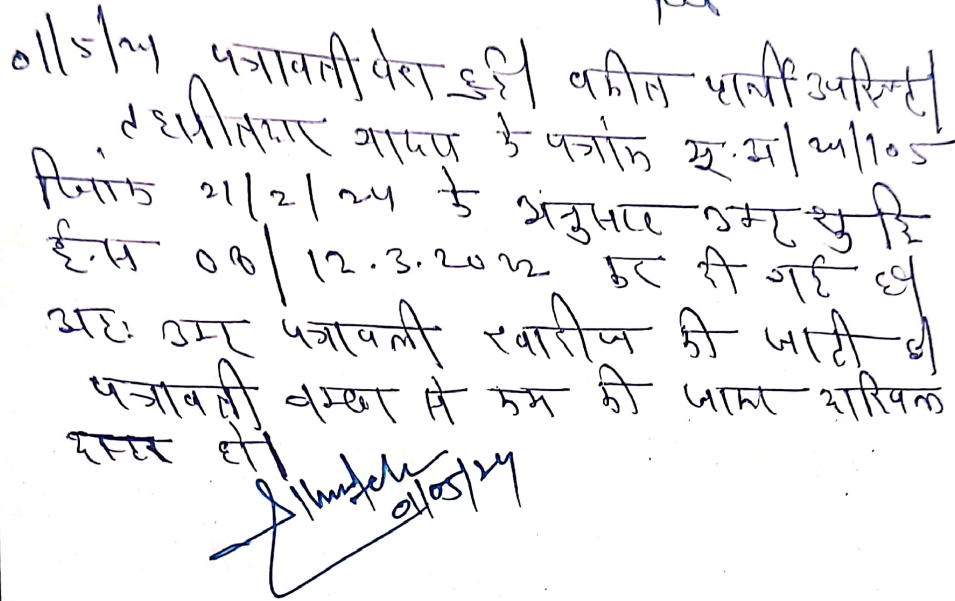 01/5/24 पत्रावली पेश हुई। वकील प्रार्थी उपस्थित।
तहसीलदार के पत्रांक भू.अ/24/105
दिनांक 21/2/24 के अनुसार उक्त शुद्धि
ई.स 08/12.3.2022 कर दी गई है।
अतः उक्त पत्रावली खारीज की जाती है।
पत्रावली नम्बर से कम की जाकर दाखिल
दफ्तर हो।
01/05/24